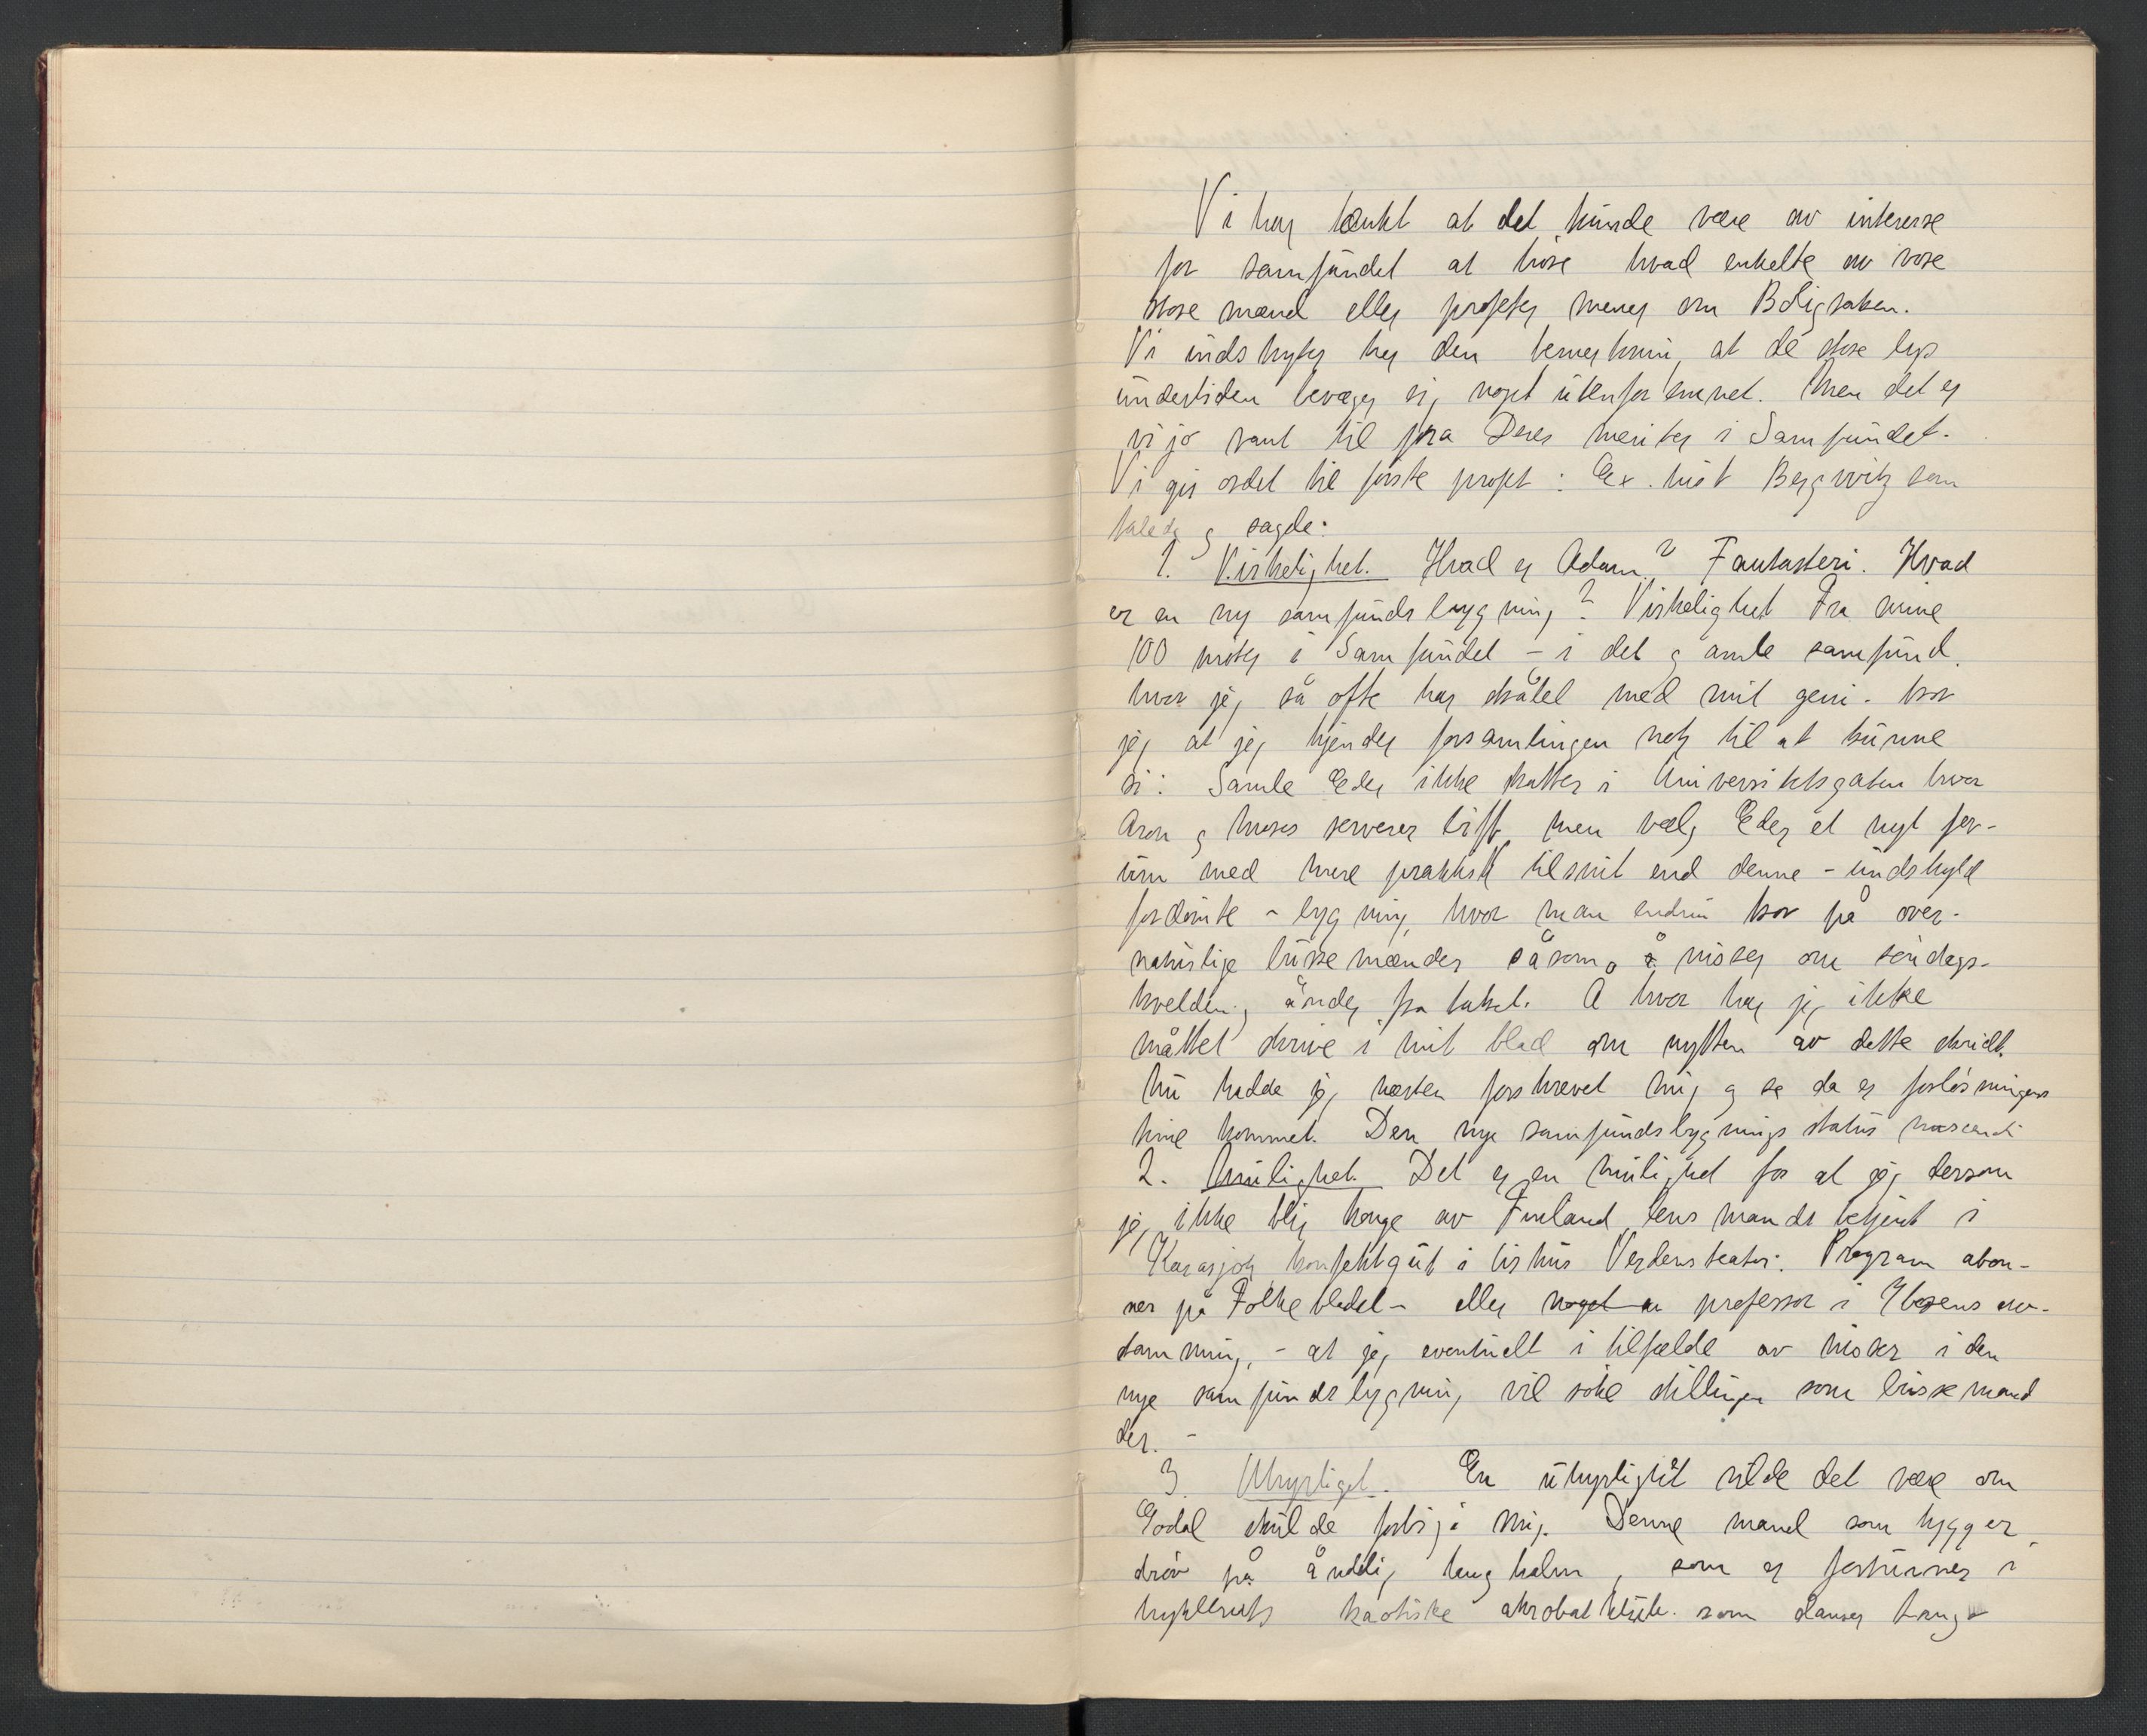 Vi har tænkt at det kunde være av interesse
for samfundet at høre hvad enkelte av vore
store mænd eller profeter mener om Boligsaken.
Vi indskyter her den bemerkning, at de store lys
undertiden bevæger sig noget utenfor emnet. Men det er
vi jo vant til fra Deres meriter i Samfundet.
Vi gir ordet til første profet: Ex. Bergwitz som
talede og sagde:
1. Virkelighet. Hvad er Adam? Fantasteri. Hvad
er en ny samfundsbygning? Virkelighet Fra mine
100 møter i Samfundet – i det gamle samfund
hvor jeg så ofte har strålet med mit geni – tror
jeg at jeg kjender forsamlingen nok til at kunne
si: Samle Eder ikke skatter i Universitetsgaten hvor
Aron og Moses serverer biff, men vælg Eder et nyt for-
um med mere praktisk tilsnit end denne – undskyld
fordømte – bygning, hvor man endnu tror på over-
naturlige bussemænder såsom nisser om søndags-
kvelden, ånder fra taket. Å hvor har jeg ikke
måttet skrive i mit blad om nytten av dette skridt.
Nu hadde jeg næsten forskrevet mig og se da er forløsningens
time kommet. Den nye samfundsbygnings status nascendi
2. Mulighet. Det er en mulighet for at jeg dersom
jeg ikke blir konge av Finland, lensmandsbetjent i
Karasjok, konfektgut i cirkus Verdensteater: Program abon-
ner på Folkebladet – eller noget en professor i Ibsens av-
stamning, – at jeg eventuelt i tilfælde av nisser i den
nye samfundsbygning vil søke stillingen som bussemand
der. –
3. Uhyrliget. En uhyrlighet vilde det være om
Eodal skulde forbigå mig. Denne mand som tygger
drøv på åndelig langhalm, som er forsuner i
hykleriets kaotiske akrobat som danser